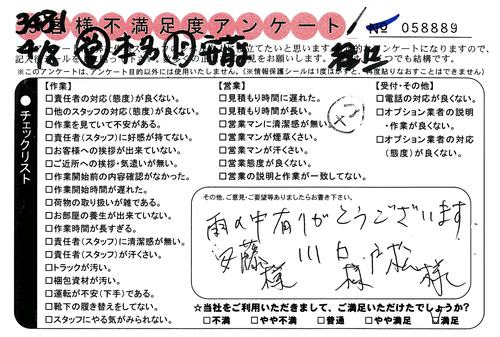 お客様不満足度アンケート
№ 058889
※このアンケートは、アンケート目的以外には使用いたしません。(※情報保護シールは1度はがすと、再度貼りなおすことはできません)
チェックリスト
【作業】
□責任者の対応(態度)が良くない。
□他のスタッフの対応(態度)が良くない。
□作業を見ていて不安がある。
□責任者(スタッフ)に好感が持てない。
□お客様への挨拶が出来ていない。
□ご近所への挨拶・気遣いが無い。
□作業開始前の内容確認がなかった。
□作業開始時間が遅れた。
□荷物の取り扱いが雑である。
□お部屋の養生が出来ていない。
□作業時間が長すぎる。
□責任者(スタッフ)に清潔感が無い。
□責任者(スタッフ)が汗くさい。
□トラックが汚い。
□梱包資材が汚い。
□運転が不安(下手)である。
□靴下の履き替えをしてない。
□スタッフにやる気がみられない。
【営業】
□見積もり時間に遅れた。
□見積もり時間が長い。
□営業マンに清潔感が無い。
□営業マンが煙草くさい。
□営業マンが汗くさい。
□営業態度が良くない。
□営業の説明と作業が一致してない。
×2
【受付・その他】
□電話の対応が良くない。
□オプション業者の説明・作業が良くない。
□オプション業者の対応(態度)が良くない。
その他、ご意見・ご要望等ありましたらお書き下さい。
雨の中有りがとうございます
安藤様 川白様 戸松様
☆当社をご利用いただきまして、ご満足いただけたでしょうか?
□不満 □やや不満 □普通 □やや満足 □満足